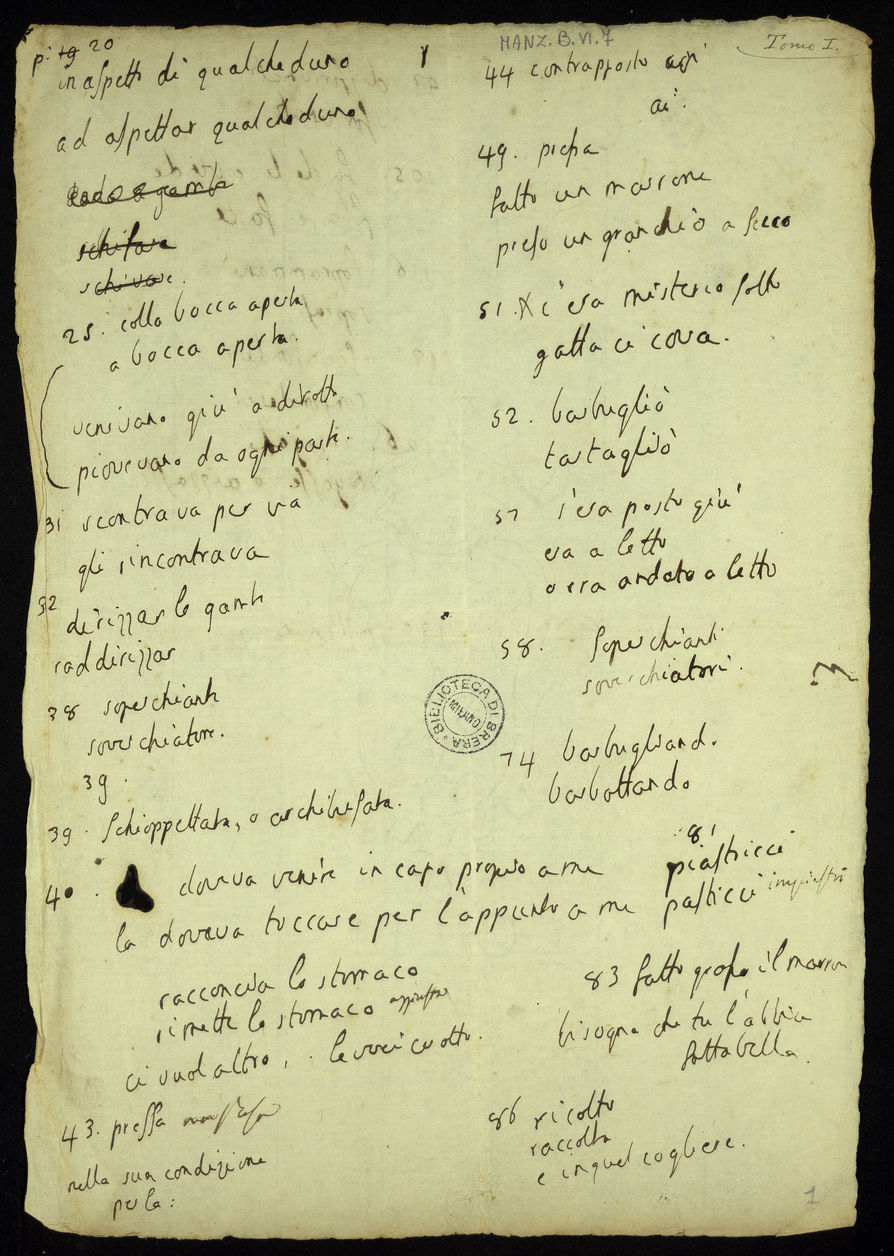 MANZ.B.VI.7
Tomo I.
p: 19 20
in aspetto di qualcheduno
ad aspettar qualcheduno
schifare
schivare.
25. colla bocca aperta
a bocca aperta.
venivano giù a dirotto
piovevano da ogni parte.
31 scontrava per via
gli rincontrava
32
dirizzar le gambe
raddirizzar
38 soperchiante
soverchiatore.
39.
39. Schioppettata, o archibusata.
40. doveva venire in capo proprio a me
la doveva toccare per l'appunto a me
racconcia lo stomaco
rimette lo stomaco
ci vuol altro,
43. pressa
nella sua condizione
per la:
1
44 contrapposto agli
ai.
49. pressa
fatto un marrone
preso un granchio a secco
51. X c'era misterio sotto
gatta ci cova.
52. barbugliò
tartagliò
57 s'era posto giù
era a letto
o era andato a letto
58. Soperchianti
soverchiatori.
BIBLIOTECA DI BRERA
MILANO
74 barbugliando.
barbottando
81
piastricci
pasticci impiastri
83 fatto grosso il marrone
bisogna che tu l'abbia
fatta bella.
86 ricolto
raccolta
e in quel cogliere.
1